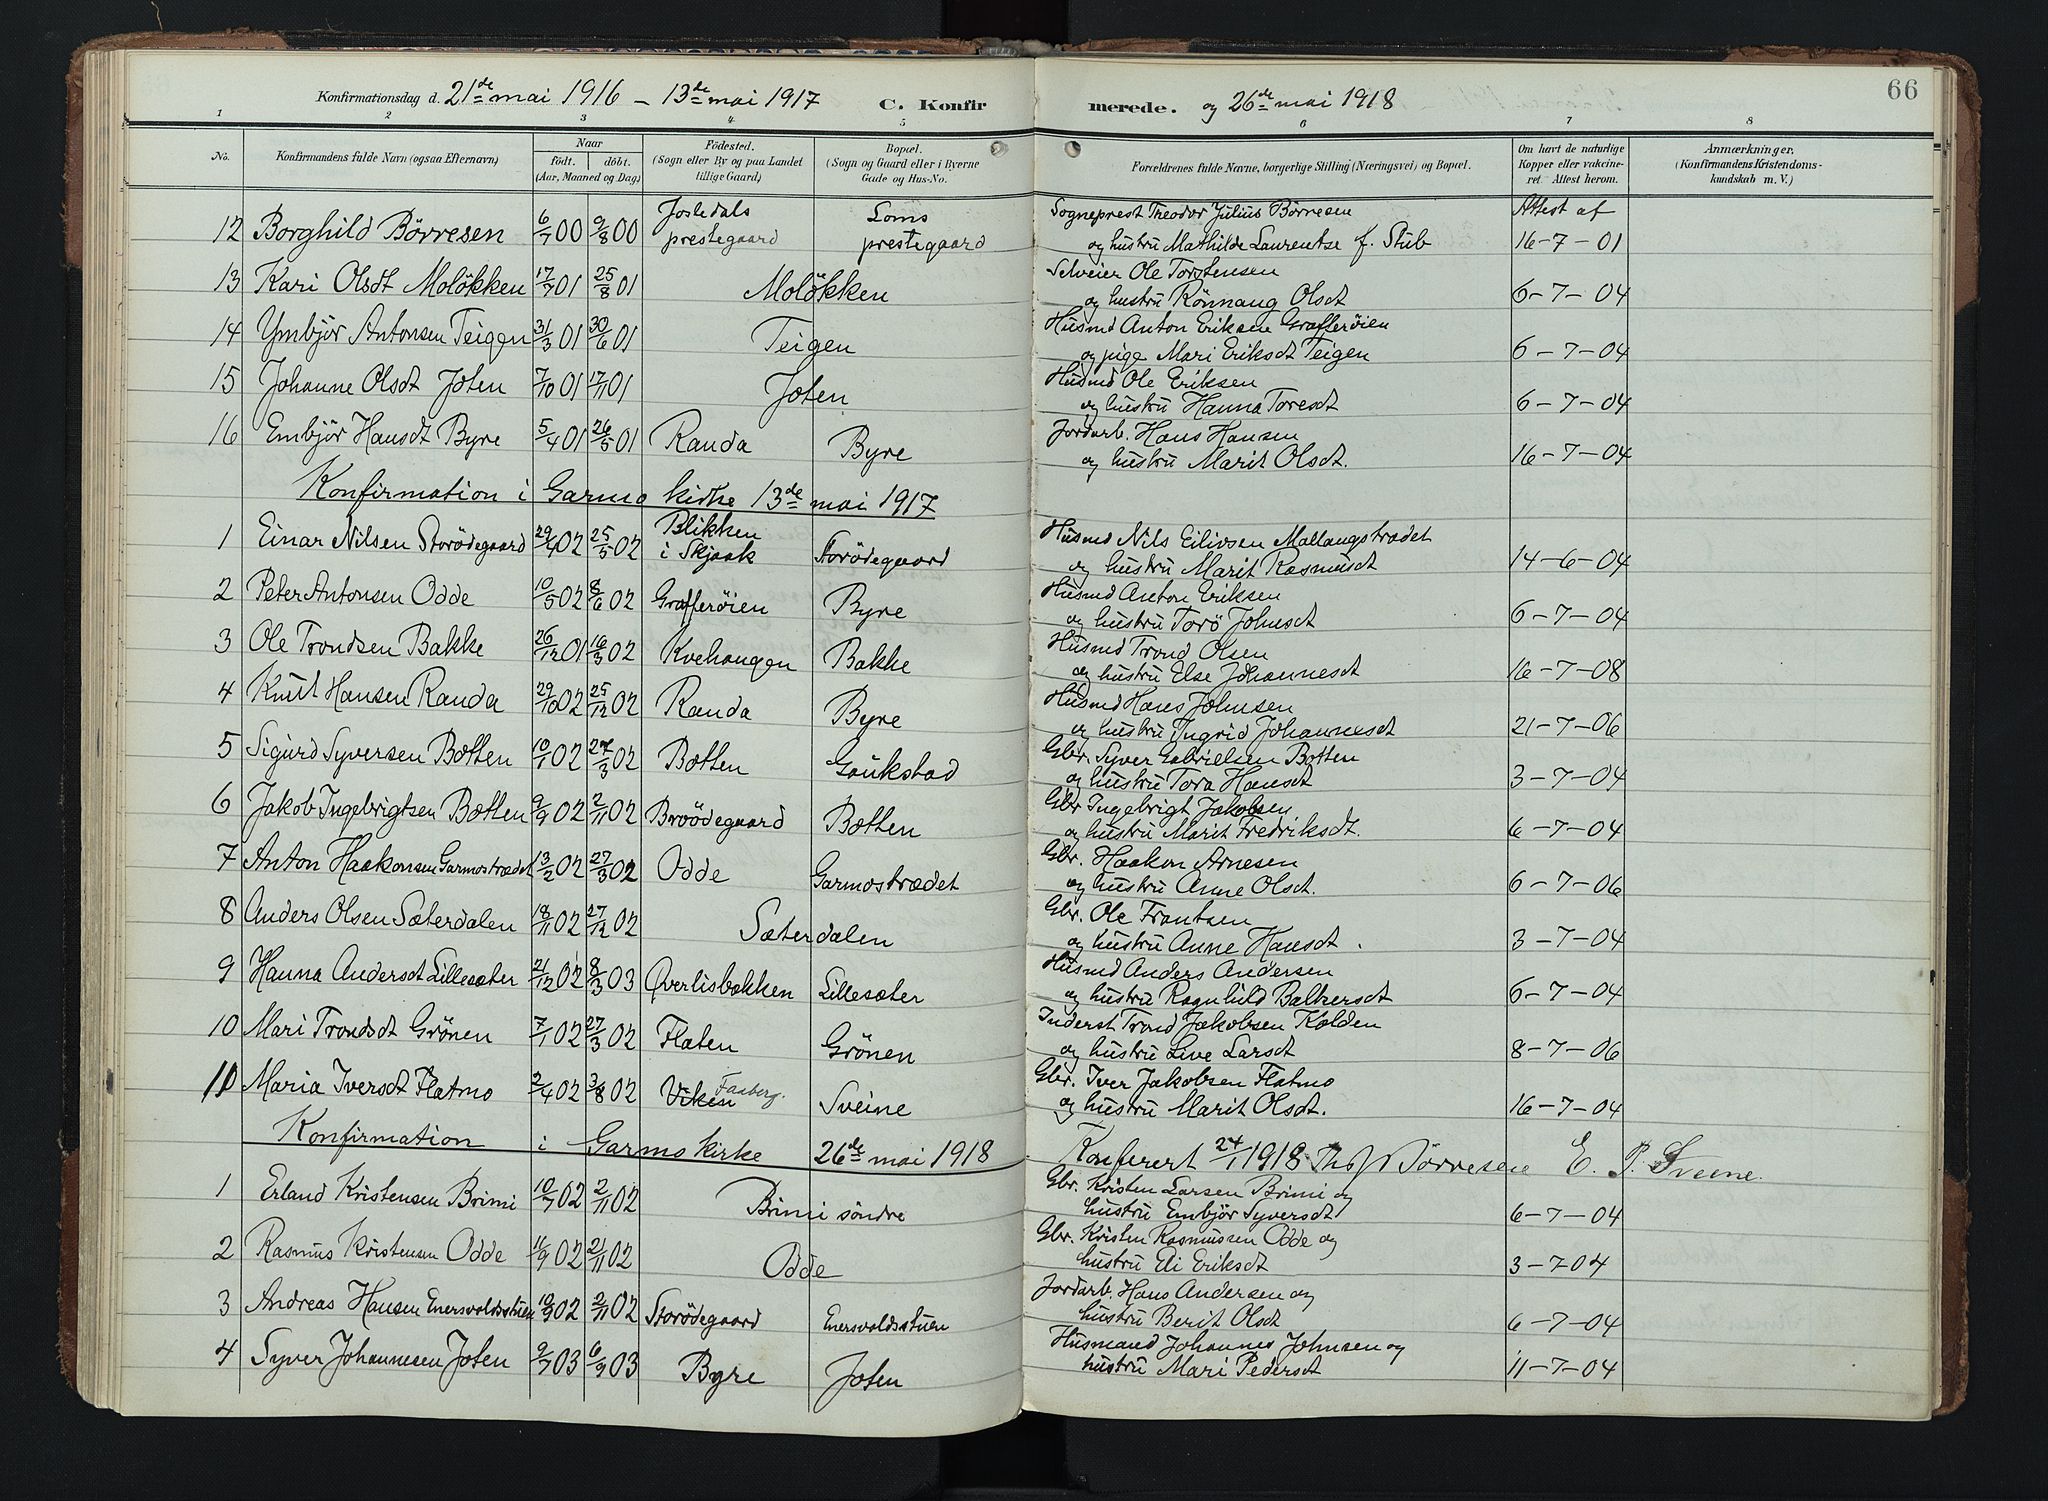 66
Konfirmationsdag d. 21de mai 1916 – 13de mai 1917 C. Konfirmerede. og 26de mai 1918
1 2 3 4 5 6 7 8
No. Konfirmandens fulde Navn (ogsaa Efternavn) Naar födt. döbt. (Aar, Maaned og Dag) Födested. (Sogn eller By og paa Landet tillige Gaard) Bopæl. (Sogn og Gaard eller i Byerne Gade og Hus-No. Forældrenes fulde Navne, borgerlige Stilling (Næringsvei) og Bopæl. Om havt de naturlige Kopper eller vakcineret. Attest herom. Anmærkninger. (Konfirmandens Kristendomskundskab m. V.)
12 Borghild Börresen 6/7 00 9/8 00 Jostedals prestegaard Loms prestegaard Sogneprest Theodor Julius Börresen Attest af
og hustru Mathilde Laurentse f. Stub 16-7-01
13 Kari Olsdt Molökken 17/7 01 25/8 01 Molökken Selveier Ole Torstensen
og hustru Rönnaug Olsdt 6-7-04
14 Ymbjör Antonsen Teigen 31/3 01 30/6 01 Teigen Husmd Anton Eriksen Grafferöien
og pige Mari Eriksdt Teigen 6-7-04
15 Johanne Olsdt Joten 7/10 01 17/11 01 Joten Husmd Ole Eriksen
og hustru Hanna Toresdt 6-7-04
16 Embjör Hansdt Byre 5/4 01 26/5 01 Randa Byre Jordarb. Hans Hansen
og hustru Marit Olsdt. 16-7-04
Konfirmation i Garmo kirke 13de mai 1917
1 Einar Nilsen Storödegaard 29/4 02 25/5 02 Blikken i Skjaak Storödegaard Husmd Nils Eilivsen Mallangstrædet
og hustru Marit Rasmusdt 14-6-04
2 Peter Antonsen Odde 10/5 02 8/6 02 Grafferöien Byre Husmd Anton Eriksen
og hustru Torö Johnsdt 6-7-04
3 Ole Trondsen Bakke 26/12 01 16/3 02 Kvehaugen Bakke Husmd Trond Olsen
og hustru Else Johannesdt 16-7-08
4 Knut Hansen Randa 29/10 02 25/12 02 Randa Byre Husmd Hans Johnsen
og hustru Ingrid Johannesdt 21-7-06
5 Sigurd Syversen Bøtten 10/1 02 27/3 02 Bøtten Gaukstad Gbr. Syver Gabrielsen Bøtten
og hustru Tora Hansdt 3-7-04
6 Jakob Ingebrigtsen Bøtten 9/9 02 2/11 02 Broödegaard Bøtten Gbr Ingebrigt Jakobsen
og hustru Marit Fredriksdt. 6-7-04
7 Anton Haakonsen Garmostrædet 13/2 02 27/3 02 Odde Garmostrædet Gbr. Haakon Arnesen
og hustru Anne Olsdt. 6-7-06
8 Anders Olsen Sæterdalen 18/11 02 27/12 02 Sæterdalen Gbr. Ole Frantsen
og hustru Anne Hansdt. 3-7-04
9 Hanna Andersdt Lillesæter 21/12 02 8/3 03 Qverlisbakken Lillesæter Husmd Anders Andersen
og hustru Ragnhild Baltzersdt 6-7-04
10 Mari Trondsdt Grönen 7/1 02 27/3 02 Flaten Grönen Inderst Trond Jakobsen Kolden
og hustru Live Larsdt 8-7-06
11 Maria Iversdt Flatmo 2/4 02 3/8 02 Viken Faaberg. Sveine Gbr. Iver Jakobsen Flatmo
og hustru Marit Olsdt. 16-7-04
Konfirmation i Garmo kirke 26de mai 1918 Konferert 24/1 1918 Th. J. Börresen E. P. Sveine.
1 Erland Kristensen Brimi 10/7 02 2/11 02 Brimi söndre Gbr. Kristen Larsen Brimi og
hustru Embjör Syversdt 6-7-04
2 Rasmus Kristensen Odde 11/9 02 21/11 02 Odde Gbr. Kristen Rasmussen Odde og
hustru Eli Eriksdt 3-7-04
3 Andreas Hansen Enersvoldsstuen 10/9 02 2/11 02 Storödegaard Enersvoldsstuen Jordarb. Hans Andersen og
hustru Berit Olsdt 6-7-04
4 Syver Johannesen Joten 9/7 03 6/9 03 Byre Joten Husmand Johannes Johnsen og
hustru Mari Pedersdt 11-7-04